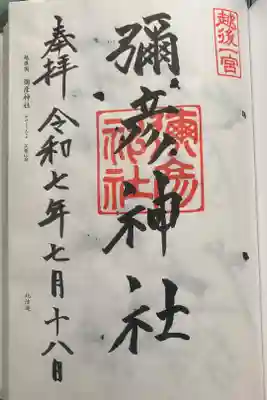 越後一宮
彌彦神社
彌彦神社
奉拝 令和七年七月十八日
越後国 彌彦神社